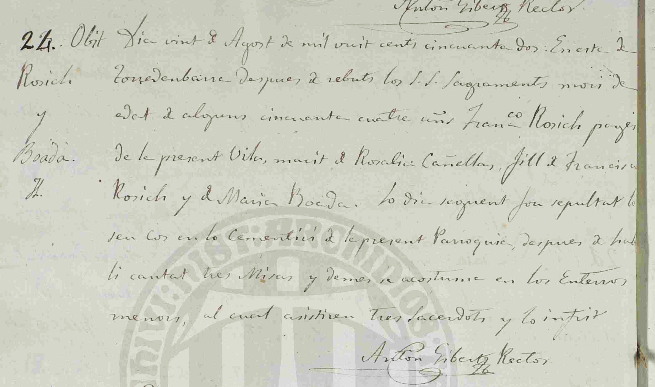 Anton Gibert Rector
24. Obit
Rosich
y
Boada.
Dia vint d Agost de mil vuit cents cincuanta dos. En esta de
Torredenbarra despues d rebuts los S.S. Sagraments morí de
edat d alguns cincuanta cuatre añs Fran.co Rosich pages
de la present Vila, marit d Rosalia Cañellas, fill d Francisco
Rosich y d Maria Boada. Lo dia seguent fou sepultat lo
seu cos en lo Cementiri d la present Parroquia, despues d
li cantat tres Misas y demes acostuma en los Enterros
menors, al cual asistiren tres Sacerdots, y lo infrit
Anton Gibert Rector